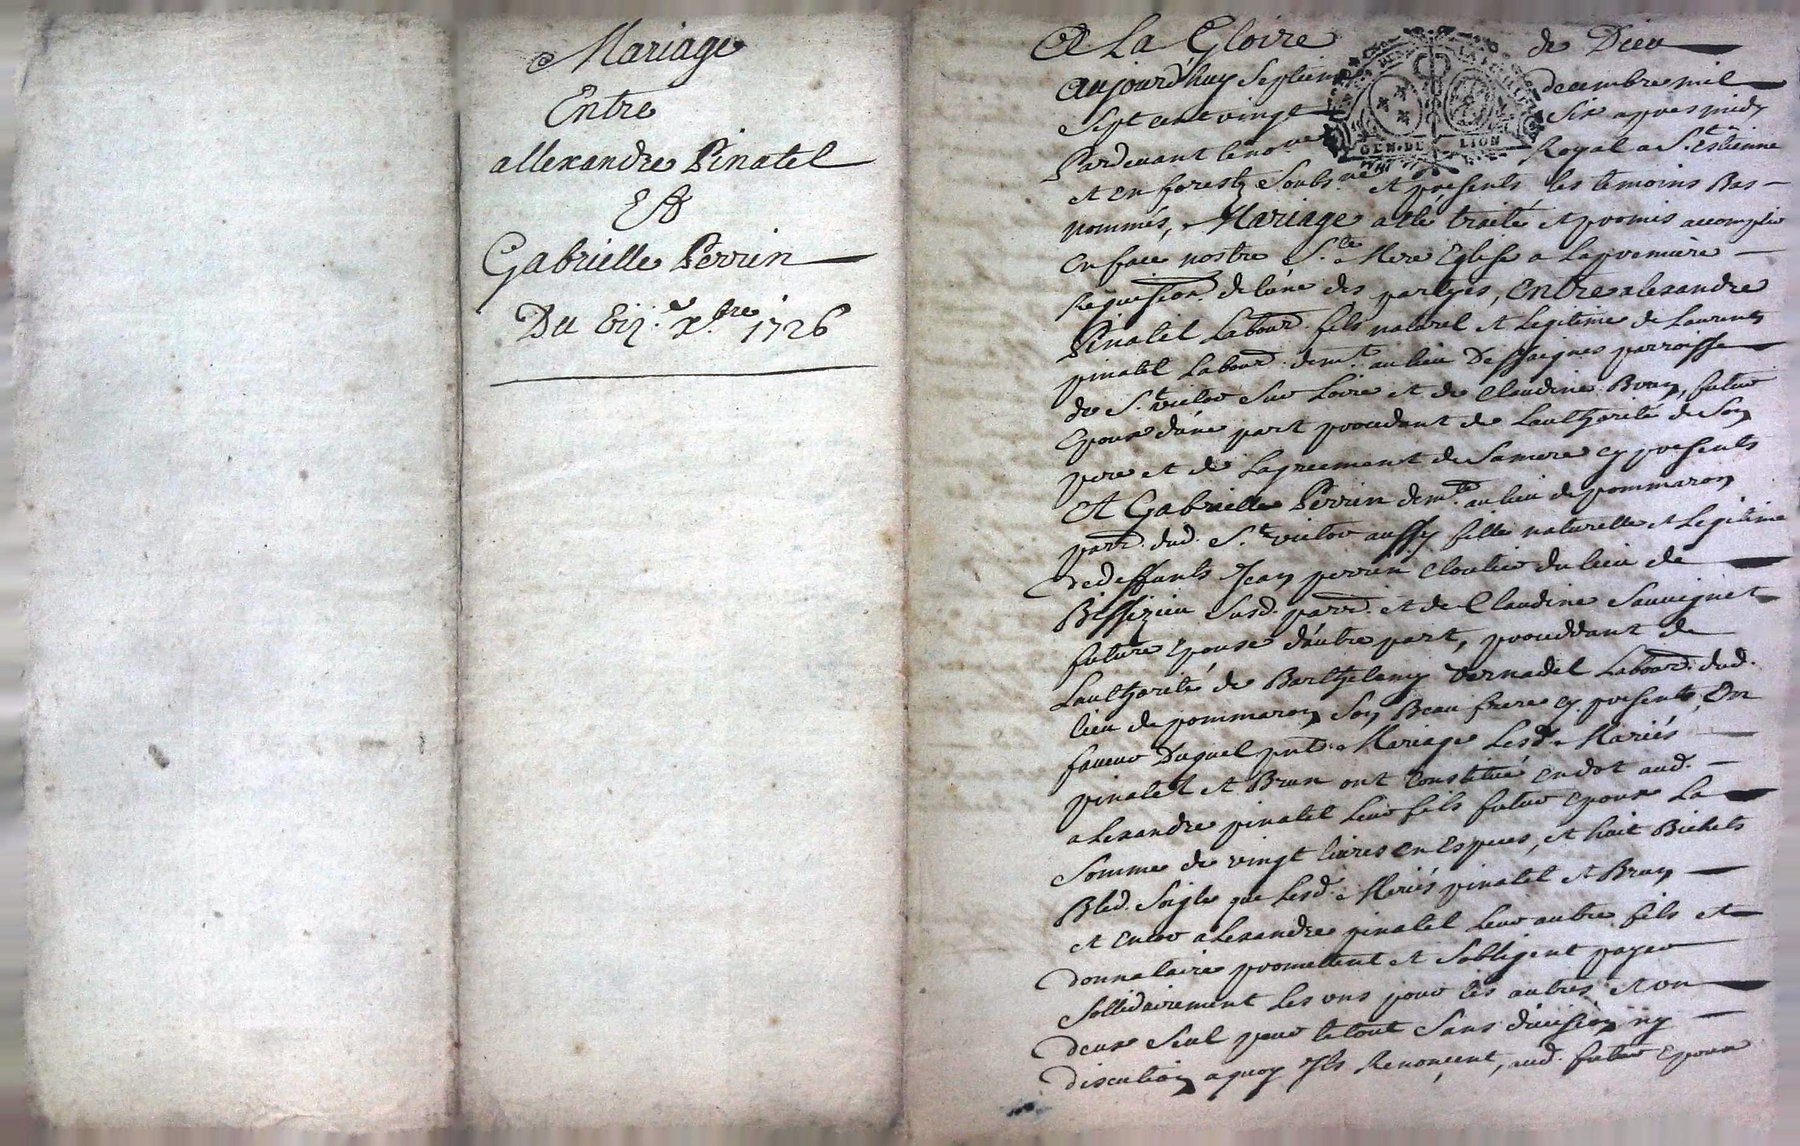 Mariage
Entre
allexandre Pinatel
Et
Gabrielle Perrin
Du xbre 1726
A La Gloire de Dieu
aujourd'huy Septieme decembre mil
Sept cent vingt Six apres midy
Pardevant le no.re Royal a St. Estienne
et en forestz Soubs.né et presents les temoins Bas
nommés, Mariage a été traité et promis accomplir
en face nostre Ste. Mere Eglise a La premiere
Requision de lúne des partyes, Entre alexandre
Pinatel Labourd. fils naturel et Legitime de Laurent
pinatel Labourd. demt. au lieu Dessaignes parroisse
de St. victor Sur Loire et de Claudine Brun, futur
Epoux d'úne part proceddant de Lauthorité de Son
pere et de Lagreement de Sa mere cy presents
Et Gabrielle Perrin demte. au lieu de pommaron
parr. dud. St. victor aussy fille naturelle et Legitime
de deffunts Jean perrin Cloutier du lieu de
Bissizieu Susd. parr. et de Claudine Sauvignet
future Epouse d'autre part, proceddant de
Lauthorité de Barthelemy Vernadel Labourd. dud.
lieu de pommaron Son Beau frere cy presents, En
faveur Duquel pnt. Mariage Lesd. Mariés
pinatel et Brun ont Constitué en dot aud.
alexandre pinatel leur fils futur Epoux La
Somme de vingt livres en Especes, et huit Bichets
Bled Seigle que Lesd. Mariés pinatel et Brun
et encor alexandre pinatel leur autre fils et
donnataire promettent et Sobligent payer
Sollidairement Les uns pour les autres et un
deux Seul pour le tout Sans division ny
discution a quoy Ils Renonçent, aud. futur Epoux
GEN. DE LION